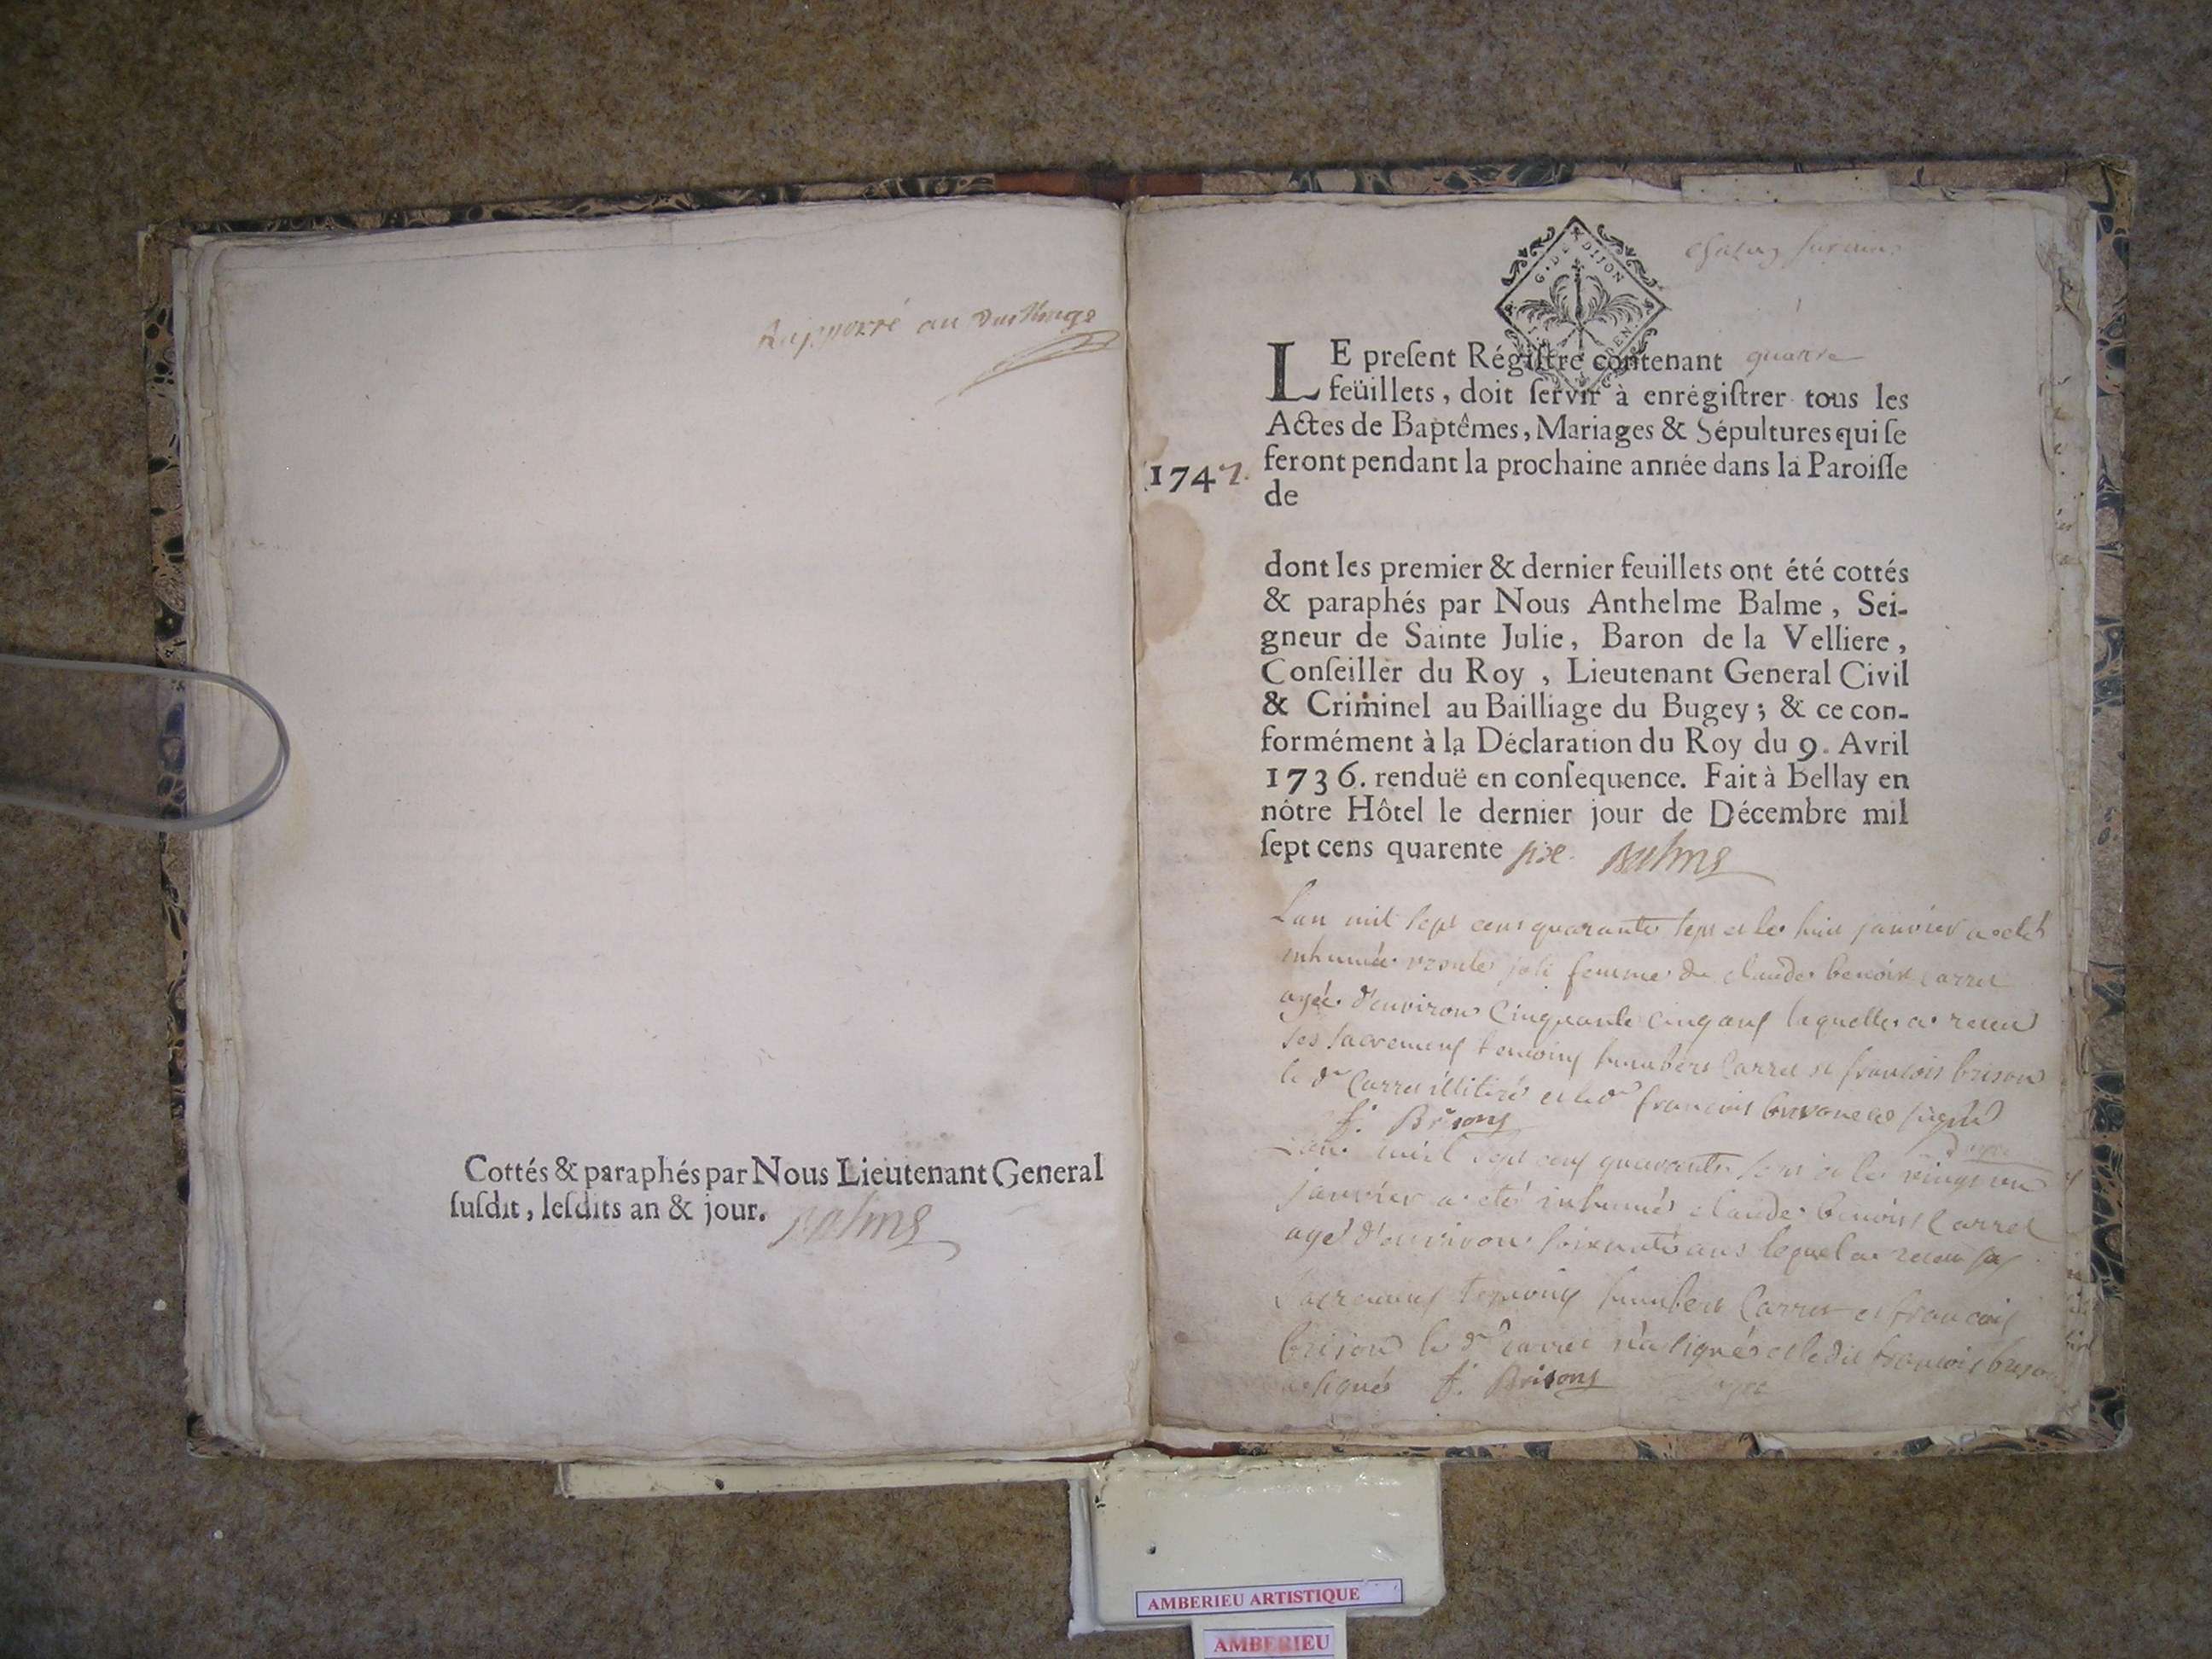 Rapporté au
Cottés & paraphés par Nous Lieutenant General
ſuſdit, leſdits an & jour. Balme
G. DE DIJON
PEN.
LE preſent Régiſtre contenant quatre
feüillets, doit ſervir à enrégiſtrer tous les
Actes de Baptêmes, Mariages & Sépultures qui ſe
1747. feront pendant la prochaine année dans la Paroiſſe
de
dont les premier & dernier feuillets ont été cottés
& paraphés par Nous Anthelme Balme, Sei-
gneur de Sainte Julie, Baron de la Velliere,
Conſeiller du Roy, Lieutenant General Civil
& Criminel au Bailliage du Bugey; & ce con-
formément à la Déclaration du Roy du 9. Avril
1736. renduë en conſequence. Fait à Bellay en
nôtre Hôtel le dernier jour de Décembre mil
ſept cens quarente six. Balme
Lan mil sept cens quarante sept et le huit janvier a eté
inhumée ursule joli femme de claude benoist Carrel
agée d'environ Cinquante cinq ans laquelle a receu
ses sacremens temoins humbert Carrel et francois brison
le dt Carrel illitiré et le dt francois brison a signé
f. Brisons
Lan mil sept cens quarante sept et le vingt un
janvier a eté inhumé claude benoist Carrel
agé d'environ soixante ans lequel a receu ses
sacremens temoins humbert Carrel et francois
brison le dt carrel n'a signé et le dit francois brison
a signé f. Brisons
AMBERIEU ARTISTIQUE
AMBERIEU